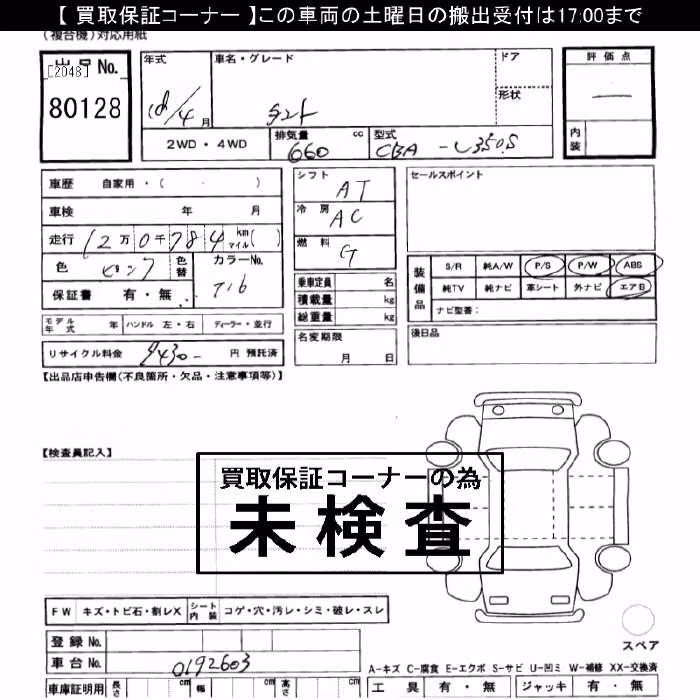 【 買取保証コーナー 】この車両の土曜日の搬出受付は17:00まで
(複合機)対応用紙
出品No. [2048] 80128
年式 18/4月
車名・グレード タント
ドア
形状
評価点 —
内装
2WD・4WD
排気量 cc 660
型式 CBA-L350S
車歴 自家用・( ・ )
車検 年 月
走行 12万0千784 km マイル( )
色 ピンク 色替
カラーNo. T16
保証書 有・無
シフト AT
冷房 AC
燃料 G
乗車定員 名
積載量 kg
総重量 kg
セールスポイント
装備品 S/R 純A/W P/S P/W ABS
純TV 純ナビ 革シート 外ナビ エアB
ナビ型番:
モデル年式 年 ハンドル 左・右 ディーラー・並行
名変期限 月 日
後日品
リサイクル料金 9430- 円 預託済
【出品店申告欄(不良箇所・欠品・注意事項等)】
【検査員記入】
買取保証コーナーの為
未検査
FW キズ・トビ石・割レX シート内装 コゲ・穴・汚レ・シミ・破レ・スレ
登録 No.
車台 No. 0192603
スペア
A-キズ C-腐食 E-エクボ S-サビ U-凹ミ W-補修 XX-交換済
車庫証明用 長さ cm 幅 cm 高さ cm
工具 有・無 ジャッキ 有・無